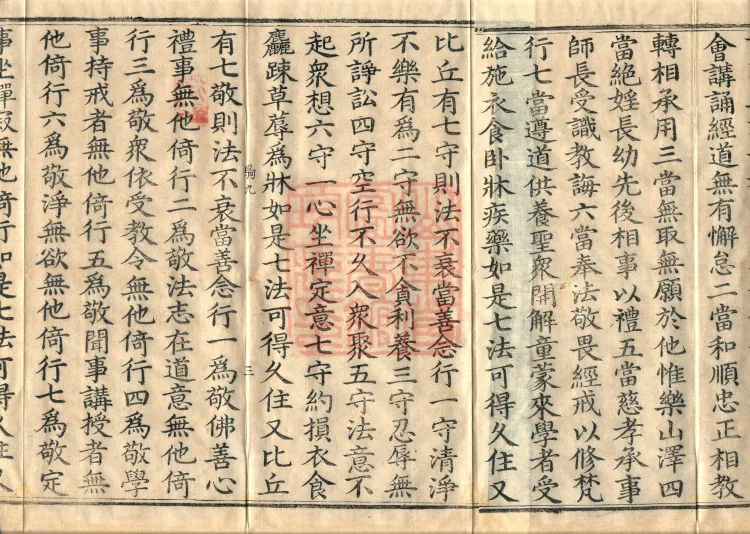 會講誦經道無有懈怠二當和順忠正相教
轉相承用三當無取無願於他惟樂山澤四
當絕婬長幼先後相事以禮五當慈孝承事
師長受識教誨六當奉法敬畏經戒以修梵
行七當遵道供養聖衆開解童蒙來學者受
給施衣食卧牀疾藥如是七法可得久住又
比丘有七守則法不衰當善念行一守清淨
不樂有爲二守無欲不貪利養三守忍辱無
所諍訟四守空行不久入衆聚五守法意不
起衆想六守一心坐禪定意七守約損衣食
麤踈草蓐爲牀如是七法可得久住又比丘
騎九
三
有七敬則法不衰當善念行一爲敬佛善心
禮事無他倚行二爲敬法志在道意無他倚
行三爲敬衆依受教令無他倚行四爲敬學
事持戒者無他倚行五爲敬聞事講授者無
他倚行六爲敬淨無欲無他倚行七爲敬定
事坐禪寂無他倚行如是七法可得久住又